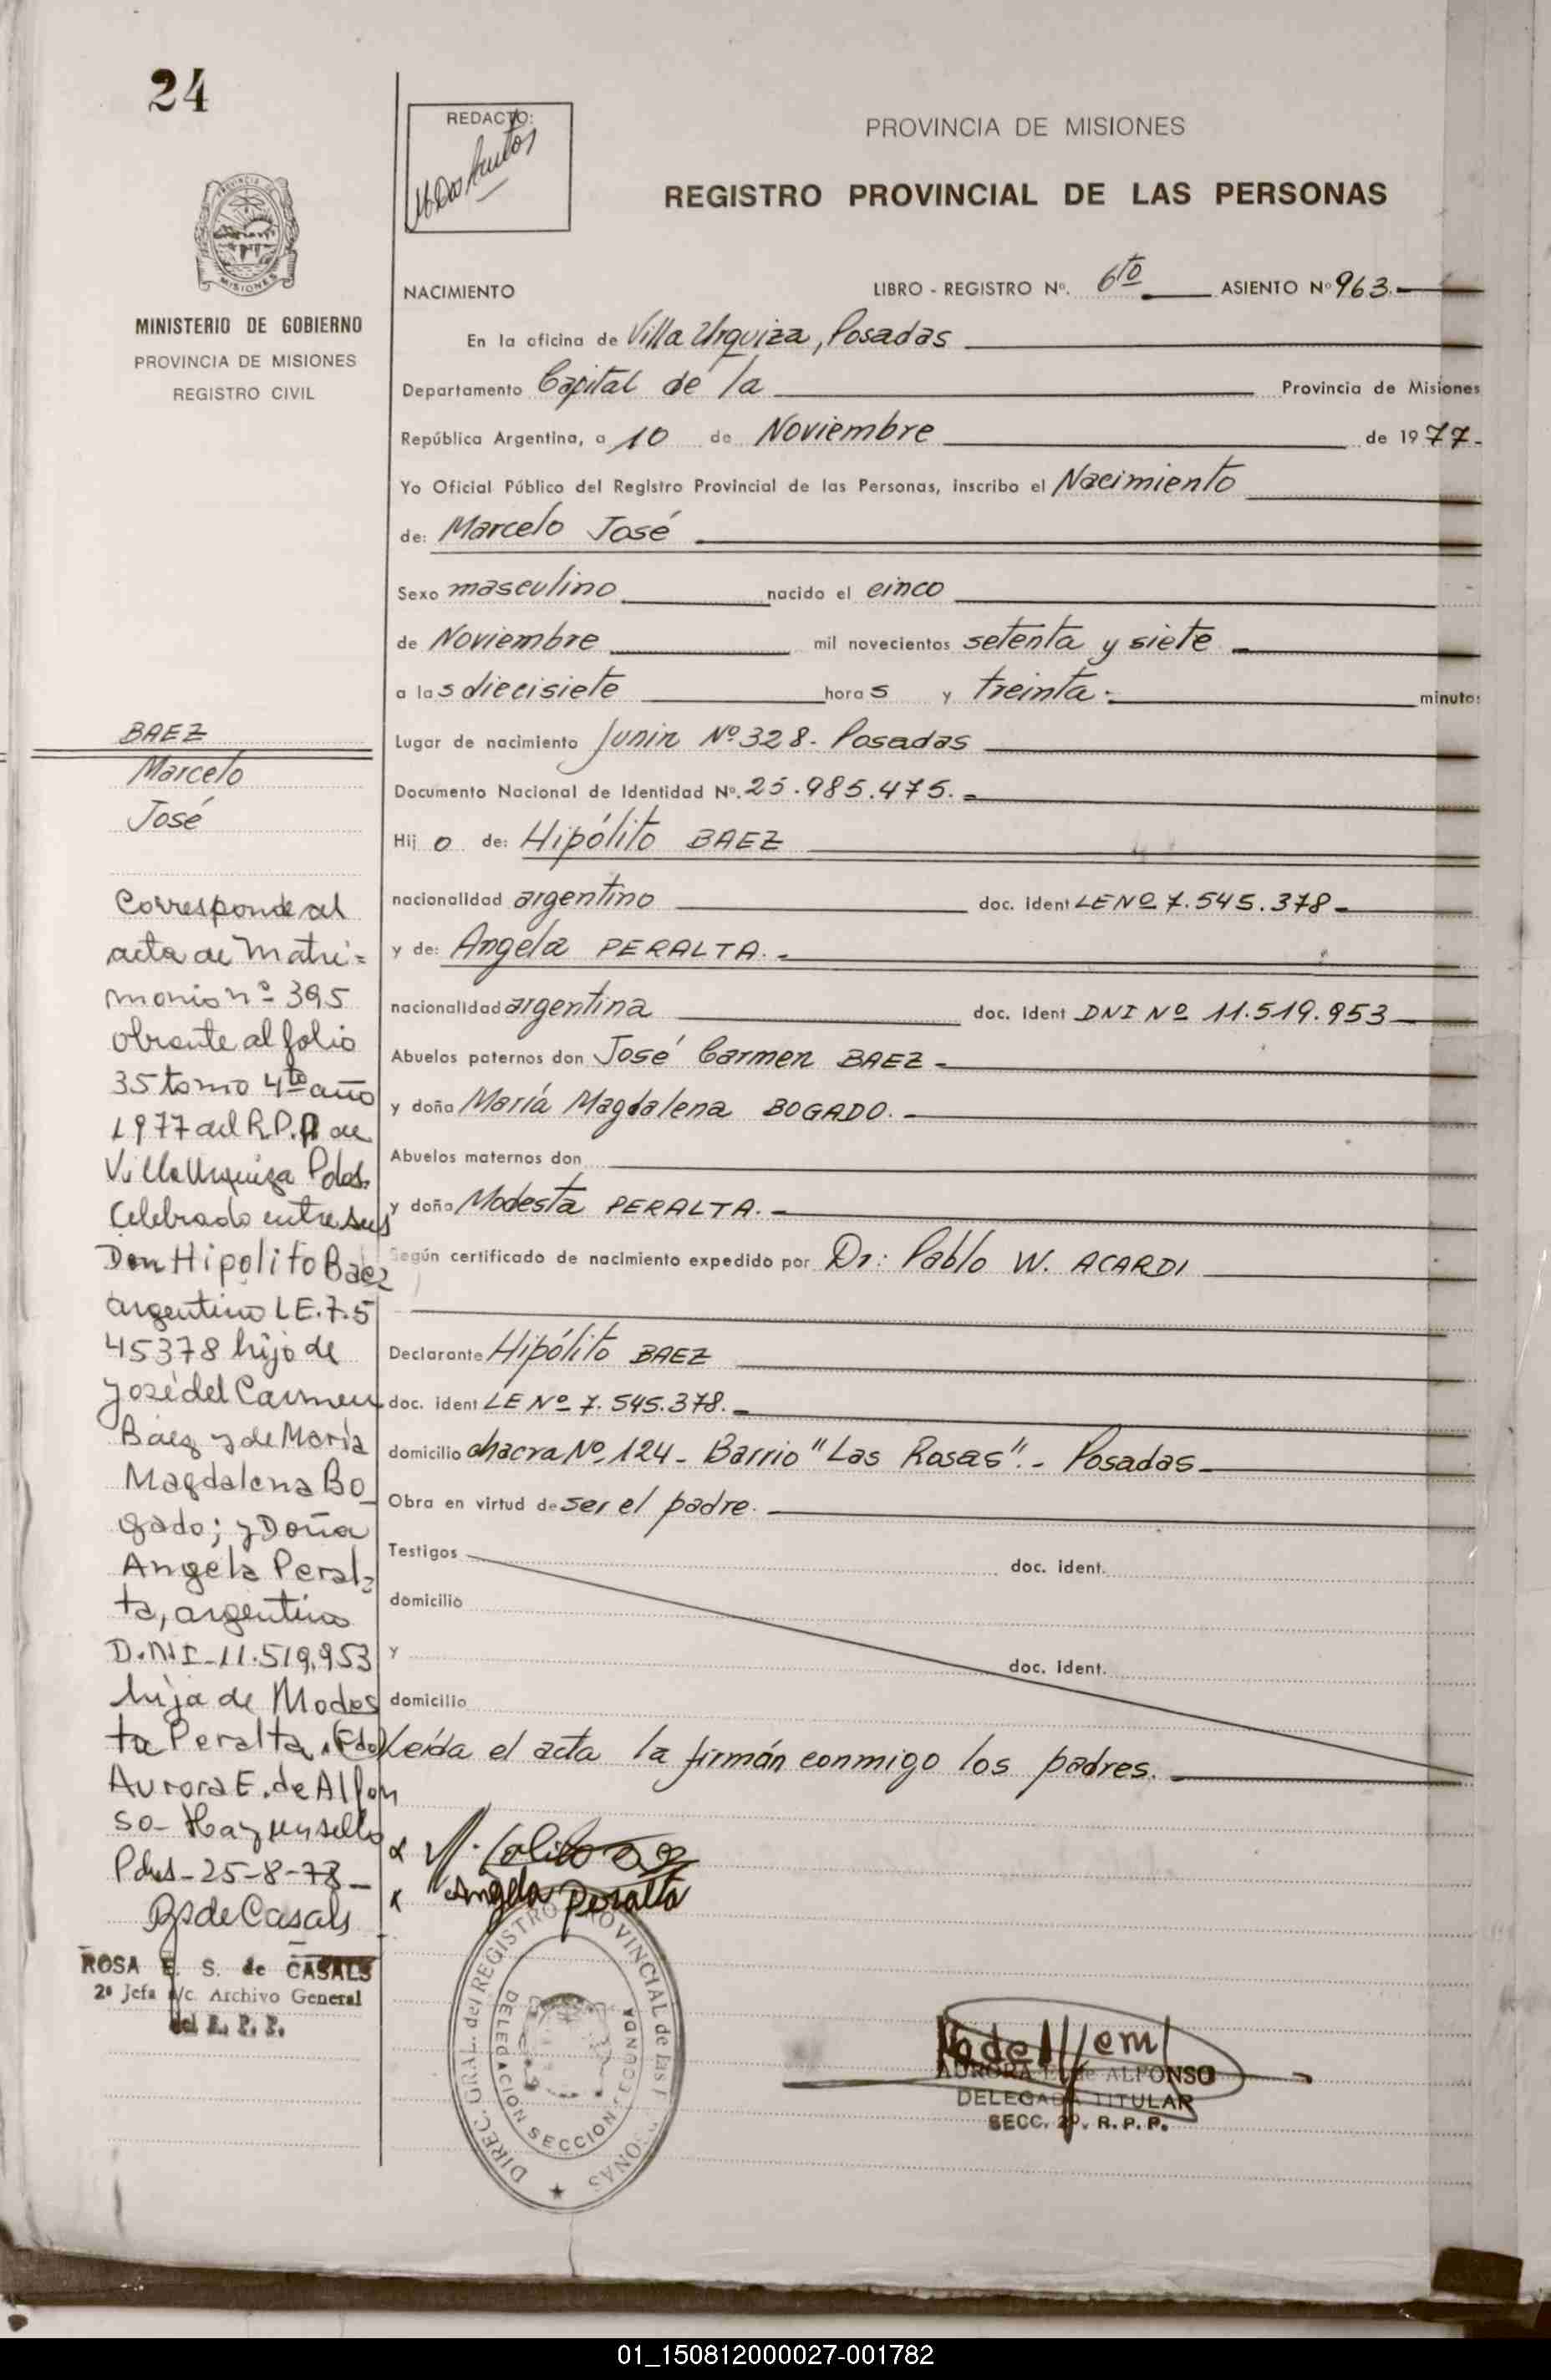 24
REDACTO:
PROVINCIA DE MISIONES
REGISTRO PROVINCIAL DE LAS PERSONAS
MISIONES
MINISTERIO DE GOBIERNO
PROVINCIA DE MISIONES
REGISTRO CIVIL
NACIMIENTO LIBRO - REGISTRO Nº. 6to ASIENTO Nº 963.
En la oficina de Villa Urquiza, Posadas
Departamento Capital de la Provincia de Misiones
República Argentina, a 10 de Noviembre de 1977.
Yo Oficial Público del Registro Provincial de las Personas, inscribo el Nacimiento
de: Marcelo José
Sexo masculino nacido el cinco
de Noviembre mil novecientos setenta y siete
a las diecisiete horas y treinta.- minutos
Lugar de nacimiento Junín Nº 328- Posadas
Documento Nacional de Identidad Nº. 25.985.475.-
Hijo de: Hipólito BAEZ
nacionalidad argentino doc. ident LE Nº 7.545.378
y de: Angela PERALTA.-
nacionalidad argentina doc. Ident DNI Nº 11.519.953
Abuelos paternos don José Carmen BAEZ
y doña María Magdalena BOGADO.-
Abuelos maternos don
y doña Modesta PERALTA.-
Según certificado de nacimiento expedido por Dr: Pablo W. ACARDI
Declarante Hipólito BAEZ
doc. ident LE Nº 7.545.378.-
domicilio chacra Nº 124- Barrio "Las Rosas".- Posadas
Obra en virtud de ser el padre.
Testigos doc. ident.
domicilio
y doc. ident.
domicilio
Leída el acta la firmán conmigo los padres.
Angela Peralta
BAEZ
Marcelo
José
Corresponde al
acta de Matri=
monio nº 395
obrante al folio
35 tomo 4to año
1977 del R.P.P de
Villa Urquiza Pdas.
Celebrado entre sus
Don Hipolito Baez
argentino LE.7.5
45378 hijo de
José del Carmen
Baez y de María
Magdalena Bo_
gado; y Doña
Angela Peral=
ta, argentina
D.N.I-11.519.953
hija de Modes
ta Peralta.(Fdo)
Aurora E. de Alfon
so- Hay un sello
Pdas-25-8-78_
ROSA E. S. de CASALS
2ª Jefa a/c. Archivo General
del R. P. P.
DIREC. GRAL. del REGISTRO PROVINCIAL de las PERSONAS
DELEGACION SECCION SEGUNDA
AURORA E. de ALFONSO
DELEGADA TITULAR
SECC. 2ª. R. P. P.
01_150812000027-001782